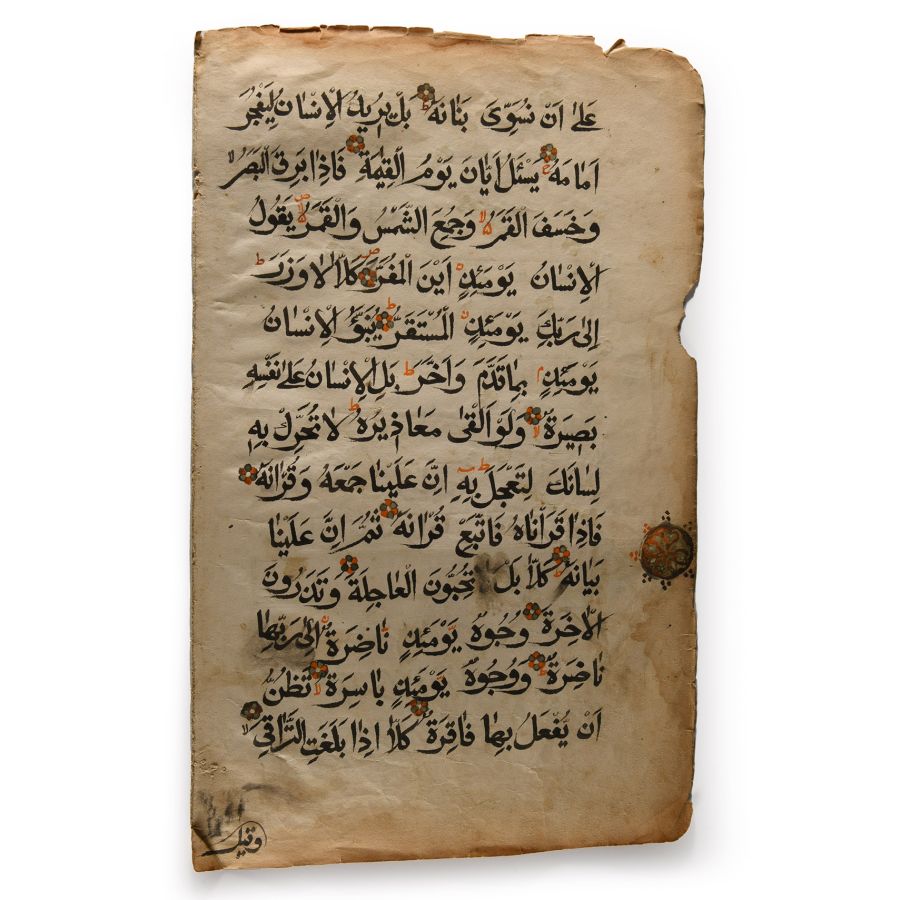 عَلىٰ اَنْ نُسَوِّىَ بَنَانَهُ ط بَلْ يُرِيدُ الْاِنْسَانُ لِيَفْجُرَ
اَمَامَهُ ج يَسْئَلُ اَيَّانَ يَوْمُ الْقِيٰمَةِ ط فَاِذَا بَرِقَ الْبَصَرُ لا
وَخَسَفَ الْقَمَرُ لا وَجُمِعَ الشَّمْسُ وَالْقَمَرُ لا يَقُولُ
الْاِنْسَانُ يَوْمَئِذٍ اَيْنَ الْمَفَرُّ ج كَلَّا لَا وَزَرَ ط
اِلىٰ رَبِّكَ يَوْمَئِذٍ الْمُسْتَقَرُّ ط يُنَبَّؤُ الْاِنْسَانُ
يَوْمَئِذٍ بِمَا قَدَّمَ وَاَخَّرَ ط بَلِ الْاِنْسَانُ عَلىٰ نَفْسِهِ
بَصِيرَةٌ لا وَلَوْ اَلْقىٰ مَعَاذِيرَهُ ط لَا تُحَرِّكْ بِهِ
لِسَانَكَ لِتَعْجَلَ بِهِ ط اِنَّ عَلَيْنَا جَمْعَهُ وَقُرْاٰنَهُ
فَاِذَا قَرَاْنَاهُ فَاتَّبِعْ قُرْاٰنَهُ ثُمَّ اِنَّ عَلَيْنَا
بَيَانَهُ ط كَلَّا بَلْ تُحِبُّونَ الْعَاجِلَةَ وَتَذَرُونَ
الْاٰخِرَةَ ط وُجُوهٌ يَوْمَئِذٍ نَاضِرَةٌ اِلىٰ رَبِّهَا
نَاظِرَةٌ ج وَوُجُوهٌ يَوْمَئِذٍ بَاسِرَةٌ لا تَظُنُّ
اَنْ يُفْعَلَ بِهَا فَاقِرَةٌ ط كَلَّا اِذَا بَلَغَتِ التَّرَاقِىَ لا
وقيل